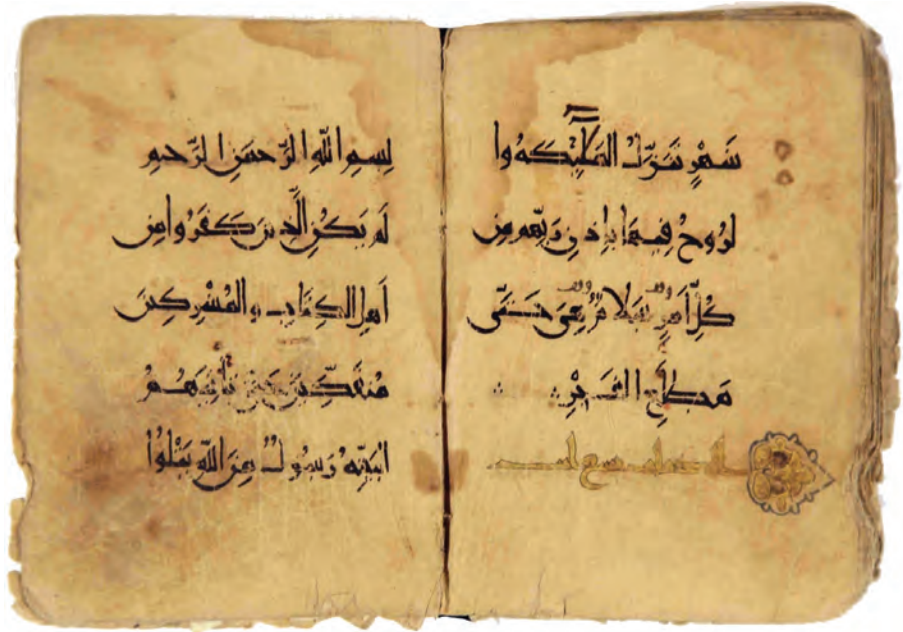 شَهْرٍ تَنَزَّلُ المَلَئِكَةُ وا
لرُوحُ فِيهَا بِإِذنِ رَبِّهِم مِن
كُلِّ أَمرٍ سَلَامٌ هِيَ حَتَّى
مَطلَعِ الفَجْرِ
بِسمِ اللّهِ الرَّحمَنِ الرَّحِيمِ
لَم يَكُنِ الَّذِينَ كَفَرُوا مِن
أَهلِ الكِتَابِ والمُشْرِكِينَ
مُنفَكِّينَ حَتَّى تَأتِيَهُمُ
البَيِّنَةُ رَسُولٌ مِنَ اللّهِ يَتْلُوا